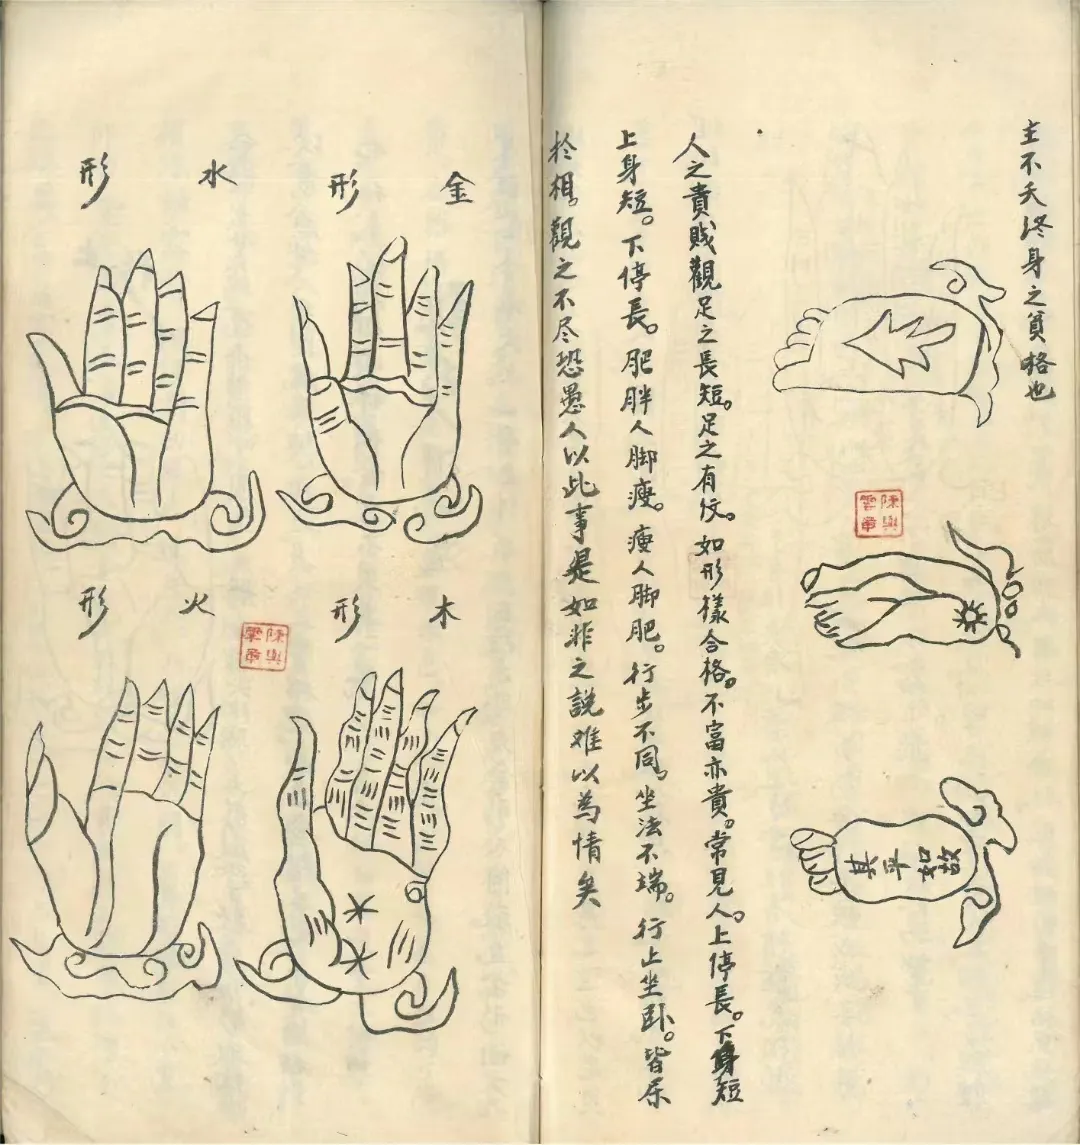 主不夭终身之貧格也
其平如故
人之貴贱觀足之長短。足之有纹。如形樣合格。不富亦貴。常見人。上停長。下身短
上身短。下停長。肥胖人脚瘦。瘦人脚肥。行步不同。坐法不端。行止坐卧。皆
於相。觀之不尽恐愚人以此事是如非之說难以為情矣
金形
水形
木形
火形